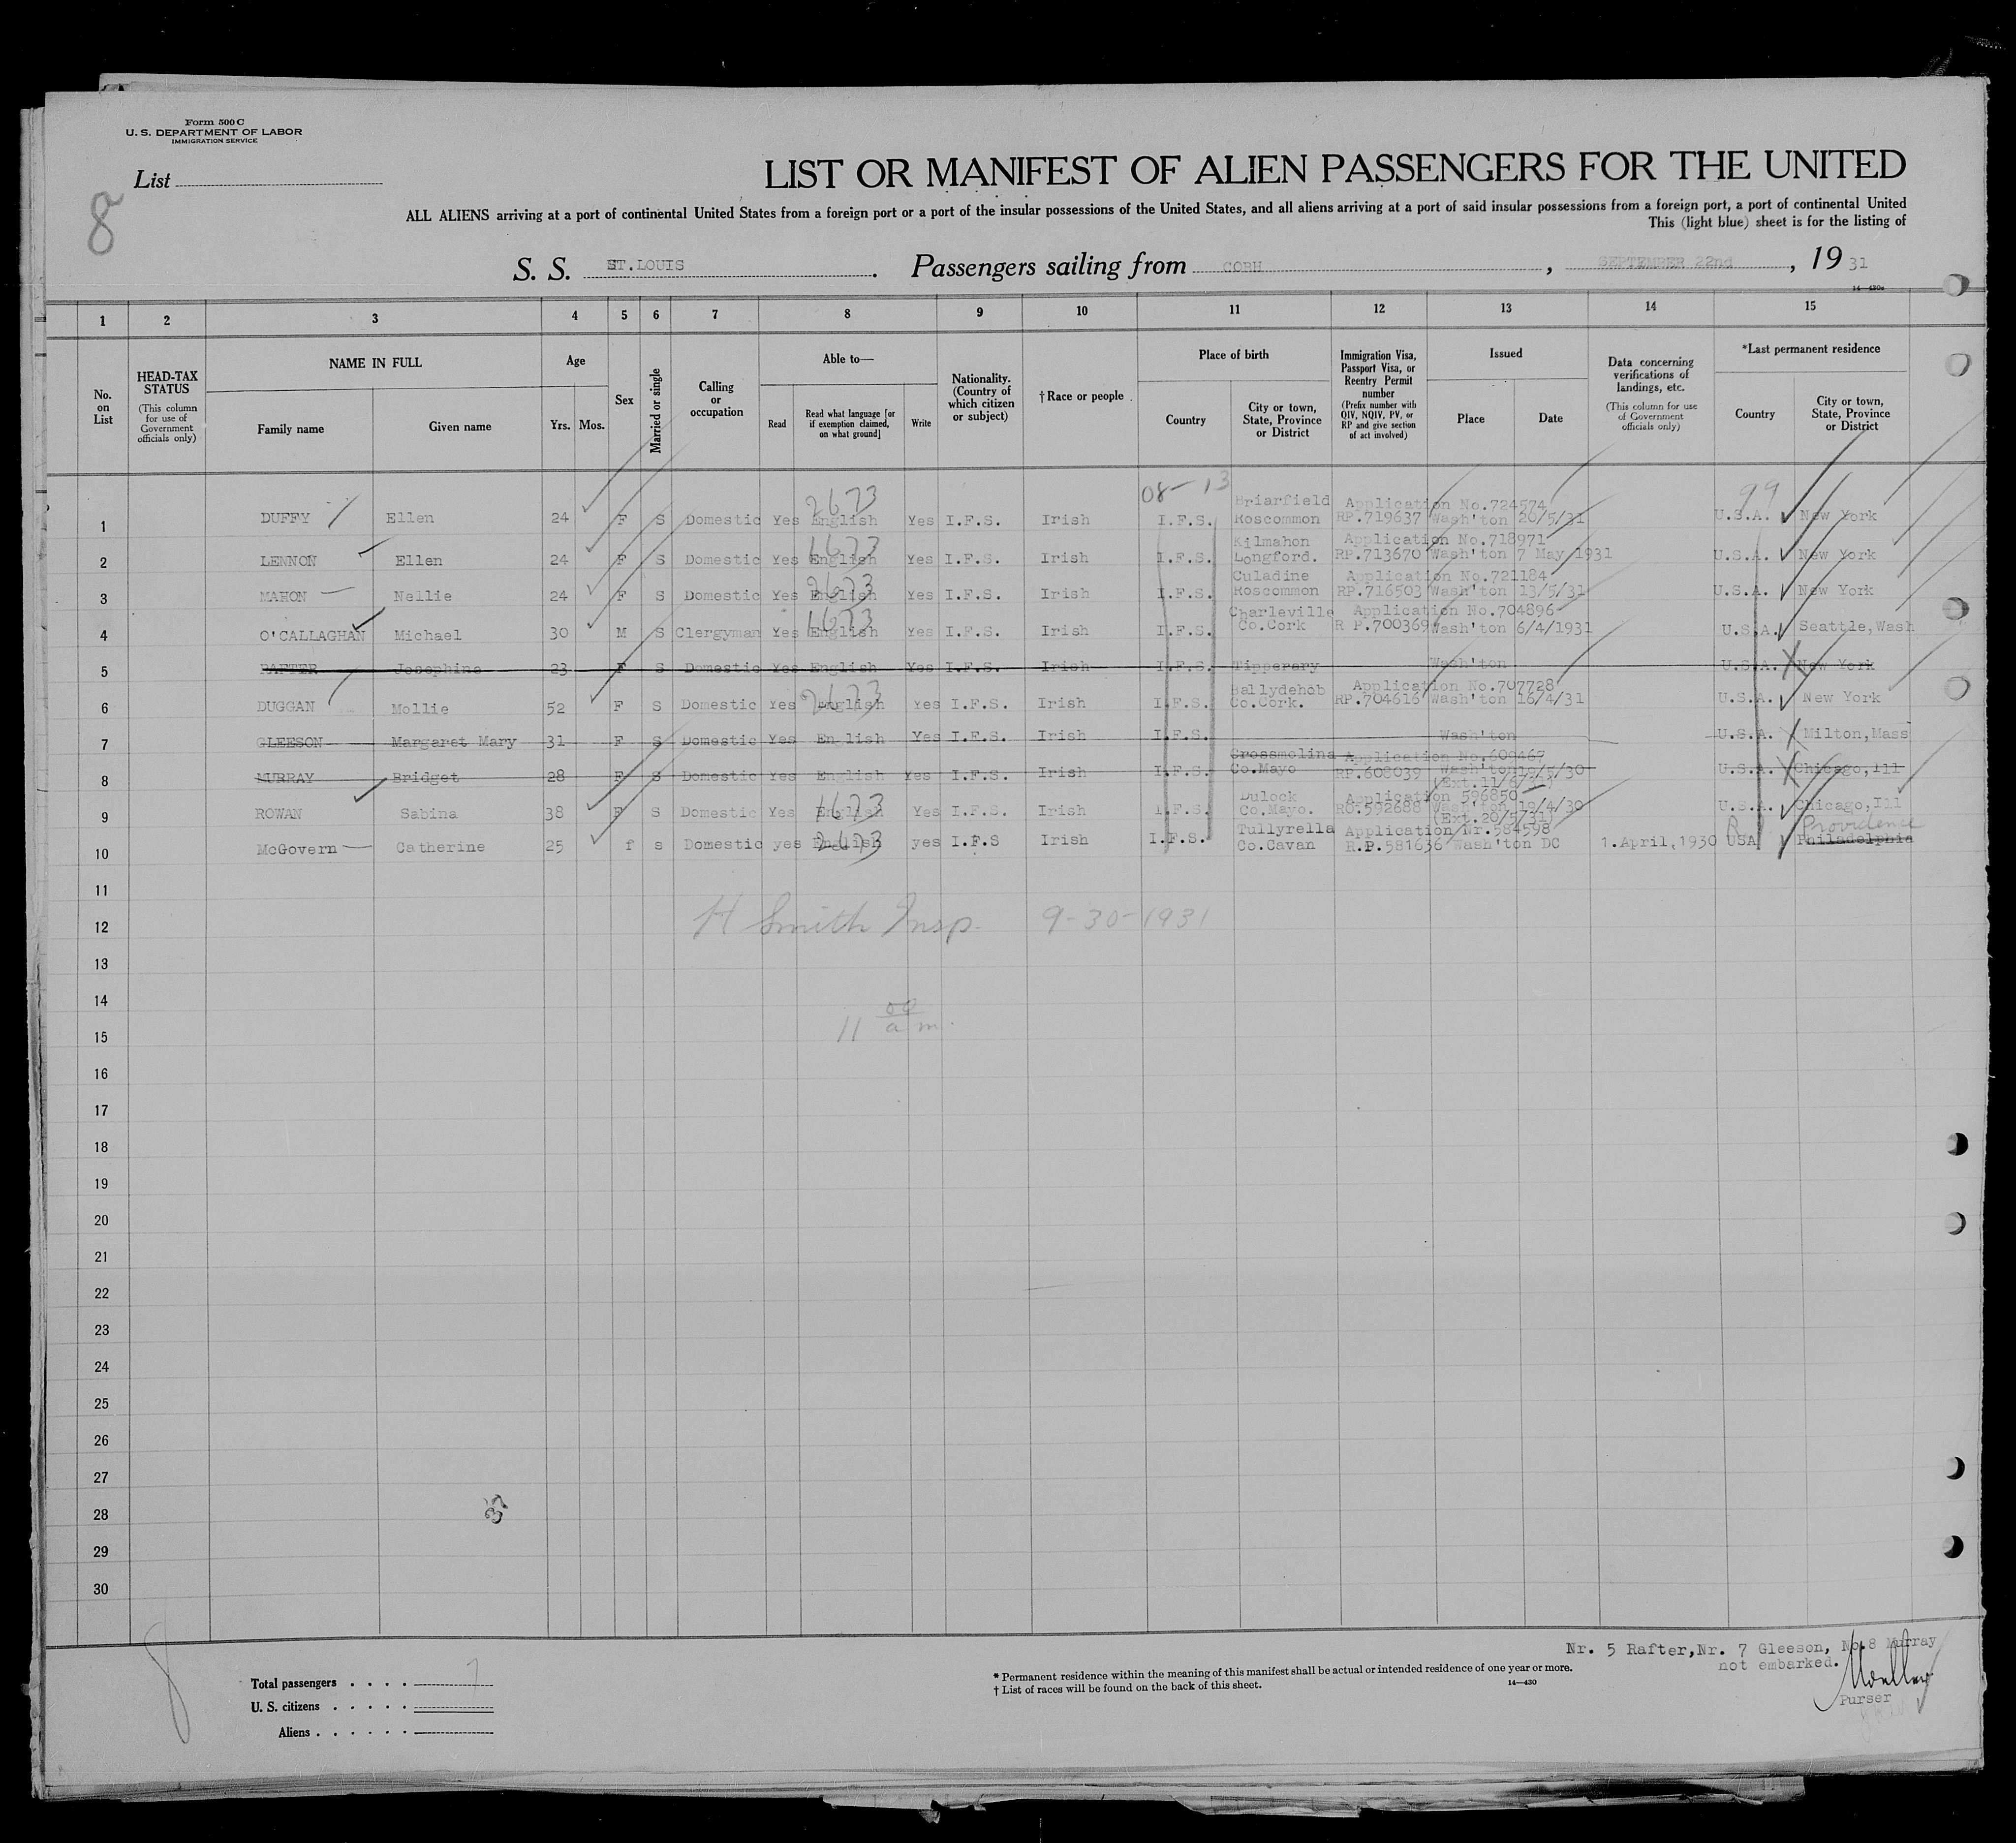 Form 500 C
U. S. DEPARTMENT OF LABOR
IMMIGRATION SERVICE
List
8
LIST OR MANIFEST OF ALIEN PASSENGERS FOR THE UNITED
ALL ALIENS arriving at a port of continental United States from a foreign port or a port of the insular possessions of the United States, and all aliens arriving at a port of said insular possessions from a foreign port, a port of continental United
This (light blue) sheet is for the listing of
S. S. ST.LOUIS . Passengers sailing from COBH , SEPTEMBER 22nd , 19 31
14—430a
1 2 3 4 5 6 7 8 9 10 11 12 13 14 15
No. on List
HEAD-TAX STATUS (This column for use of Government officials only)
NAME IN FULL
Family name
Given name
Age
Yrs. Mos.
Sex
Married or single
Calling or occupation
Able to—
Read
Read what language [or if exemption claimed, on what ground]
Write
Nationality. (Country of which citizen or subject)
† Race or people
Place of birth
Country
City or town, State, Province or District
Immigration Visa, Passport Visa, or Reentry Permit number (Prefix number with QIV, NQIV, PV, or RP and give section of act involved)
Issued
Place
Date
Data concerning verifications of landings, etc. (This column for use of Government officials only)
*Last permanent residence
Country
City or town, State, Province or District
08-13 99
2673 Briarfield Application No.724574
1 DUFFY Ellen 24 F S Domestic Yes English Yes I.F.S. Irish I.F.S. Roscommon RP.719637 Wash'ton 20/5/31 U.S.A. New York
1673 Kilmahon Application No.718971
2 LENNON Ellen 24 F S Domestic Yes English Yes I.F.S. Irish I.F.S. Longford. RP.713670 Wash'ton 7 May 1931 U.S.A. New York
2673 Culadine Application No.721184
3 MAHON Nellie 24 F S Domestic Yes English Yes I.F.S. Irish I.F.S. Roscommon RP.716503 Wash'ton 13/5/31 U.S.A. New York
1673 Charleville Application No.704896
4 O'CALLAGHAN Michael 30 M S Clergyman Yes English Yes I.F.S. Irish I.F.S. Co.Cork R P.700369 Wash'ton 6/4/1931 U.S.A. Seattle,Wash
5 RAFTER Josephine 23 F S Domestic Yes English Yes I.F.S. Irish I.F.S. Tipperary Wash'ton U.S.A. New York
2673 Ballydehob Application No.707728
6 DUGGAN Mollie 52 F S Domestic Yes English Yes I.F.S. Irish I.F.S. Co.Cork. RP.704616 Wash'ton 16/4/31 U.S.A. New York
7 GLEESON Margaret Mary 31 F S Domestic Yes En lish Yes I.F.S. Irish I.F.S. Wash'ton U.S.A. Milton,Mass
Crossmolina Application No.600467
8 MURRAY Bridget 28 F S Domestic Yes English Yes I.F.S. Irish I.F.S. Co.Mayo RP.608039 Wash'ton U.S.A. Chicago,Ill
1673 Dulock Application 596850
9 ROWAN Sabina 38 F S Domestic Yes English Yes I.F.S. Irish I.F.S. Co.Mayo. RO.592688 Wash'ton 19/4/30 U.S.A. Chicago,Ill
(Ext.20/5/31)
2673 Tullyrella Application Nr.584598 Providence
10 McGovern Catherine 25 f s Domestic yes English yes I.F.S Irish I.F.S. Co.Cavan R.P.581636 Wash'ton DC 1.April,1930 USA Philadelphia
11
12 H Smith Insp. 9-30-1931
13
14
15 11 00 a m.
16
17
18
19
20
21
22
23
24
25
26
27
28
29
30
8
Nr. 5 Rafter,Nr. 7 Gleeson, No.8 Murray
not embarked.
Purser
Total passengers 7
U. S. citizens
Aliens
* Permanent residence within the meaning of this manifest shall be actual or intended residence of one year or more.
† List of races will be found on the back of this sheet.
14—430